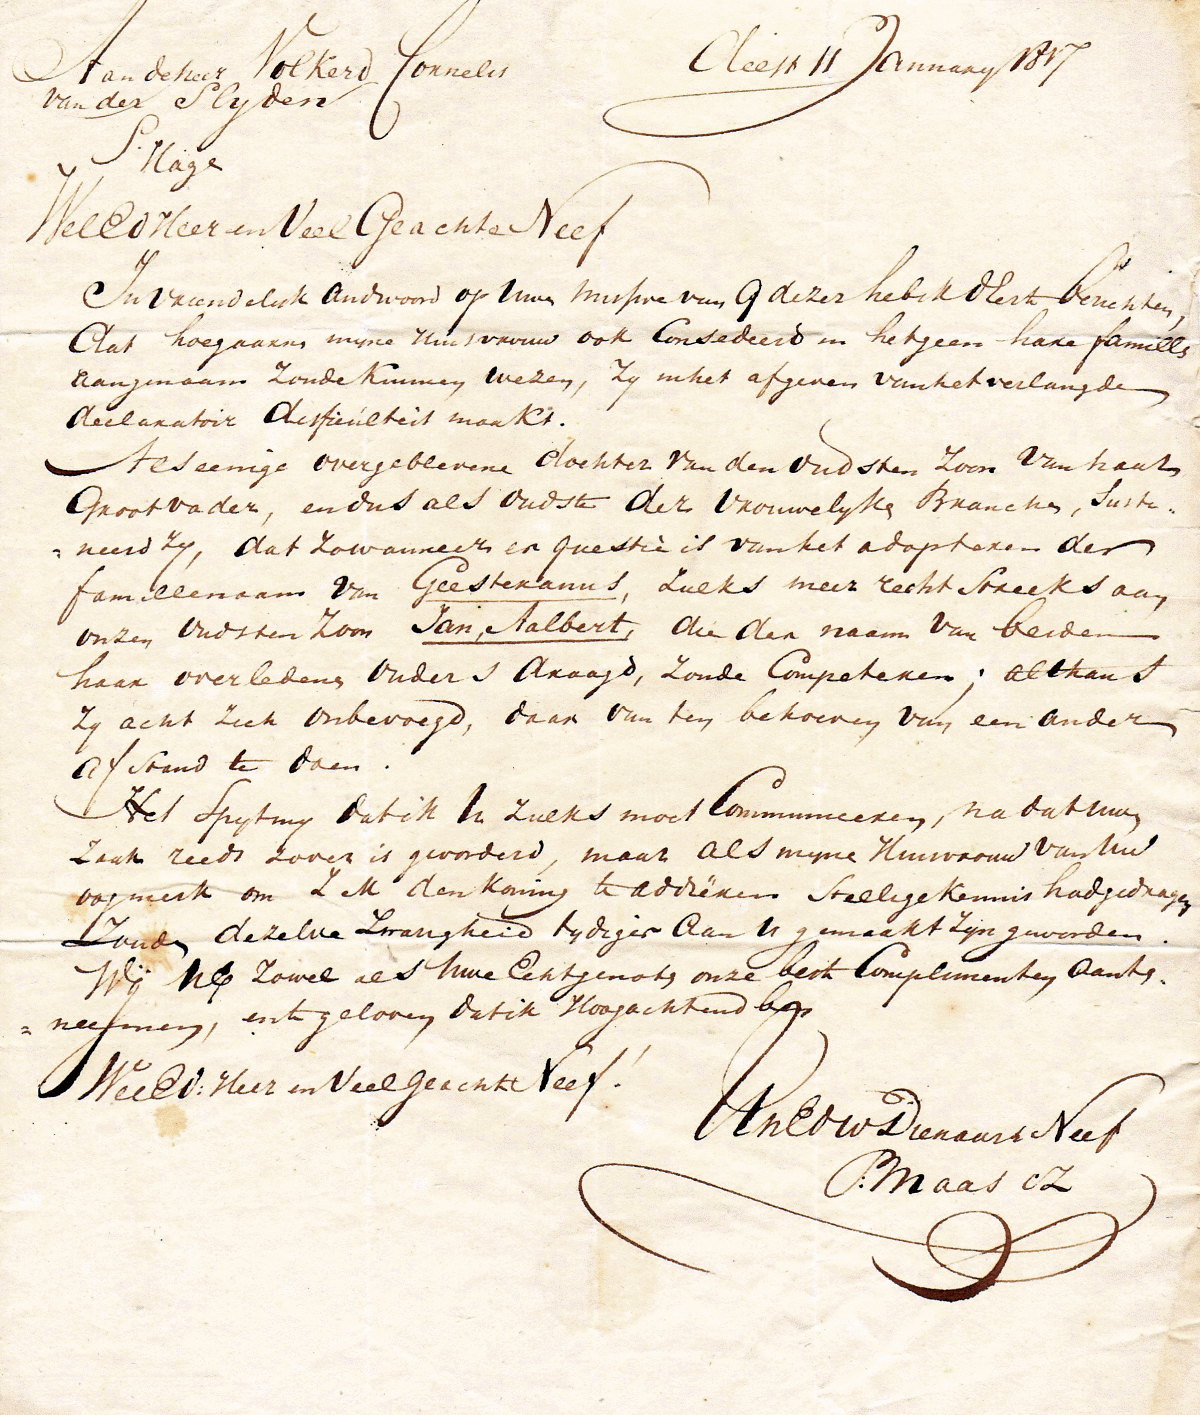 Aan de heer Volkerd Cornelis
van der Slyden
S: Hage
11 January 1817
Wel Ed Heer en Veel Geachte Neef
In vriendelyk andwoord op Uwe missive van 9 dezer heb ik UEest berichten,
dat hoegaarne myne Huisvrouw ook Consedeerd in hetgeen hare famille
aangenaam Zoude Kunnen wezen, Zy in het afgeven van het verlangde
declaratoir difficulteit maakt.
Als eenige overgeblevene dochter van den Oudsten Zoon van haar
Grootvader, en dus als Oudste der vrouwelyke Branche, Suste-
=neerd Zy, dat Zowanneer er questie is van het adopteren der
famillenaam van Geesteranus, Zulks meer recht Streeks aan
onzen Oudsten Zoon Jan, Aalbert, die den naam van beiden
haar overledene Ouders draagd, Zoude Competeren; althans
Zy acht Zich onbevoegd, daar van ten behoeven van een ander
afstand te doen.
Het Spyt my dat ik U Zulks moet Communiceeren, na dat uwe
Zaak reeds Zover is gevorderd, maar als myne Huisvrouw van Uw
oogmerk om Z M den Koning te addrëseren Stellige Kennis had gedragen
Zoude dezelve Zwarigheid tydiger aan U gemaakt Zyn geworden.
Wij UE Zowel als Uwe Echtgenote onze beste Complimenten aante-
=neemen, en te geloven dat ik Hoogachtend ben
Wel Ed: Heer en Veel Geachte Neef!
UEdw Dienaar en Neef
P: Maas CZ